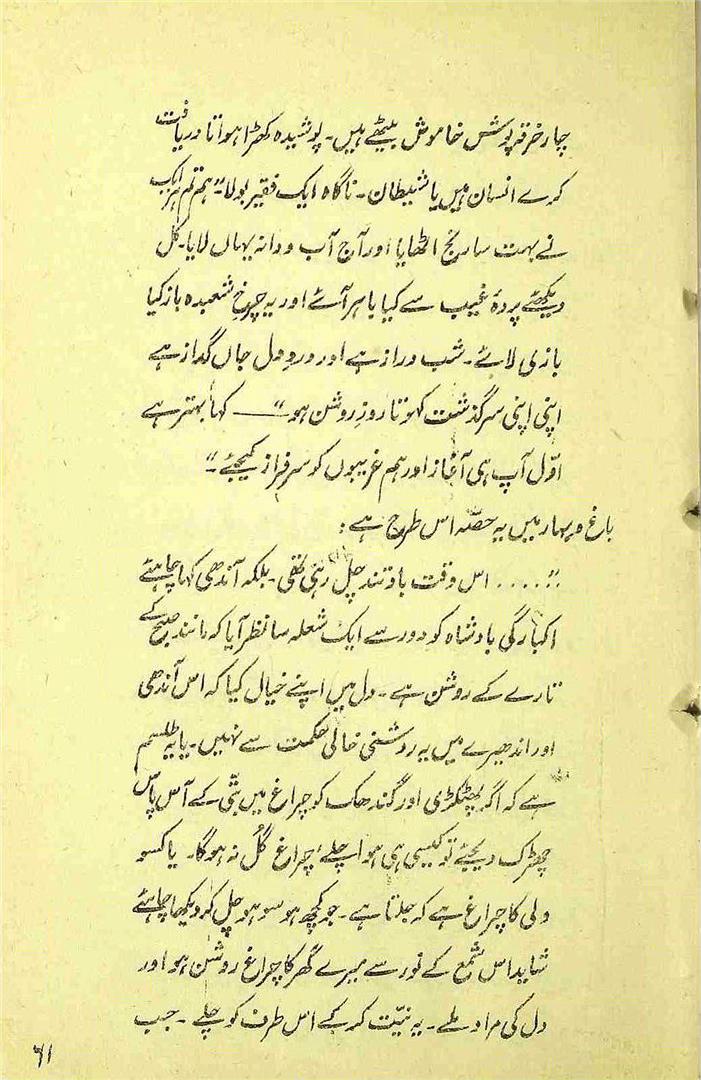 چار خرقہ پوش خاموش بیٹھے ہیں۔ پوشیدہ کھڑا ہوا تا دریافت
کرے انسان ہیں یا شیطان۔ ناگاہ ایک فقیر بولا۔ "ہم تم ہر ایک
نے بہت سا رنج اٹھایا اور آج آب و دانہ یہاں لایا۔ کل
دیکھئے پردۂ غیب سے کیا باہر آئے اور یہ چرخ شعبدہ باز کیا
بازی لائے۔ شب دراز ہے اور دردِ دل جاں گداز ہے
اپنی اپنی سرگذشت کہو تا روزِ روشن ہو" — کہا بہتر ہے
اوّل آپ ہی آغاز اور ہم غریبوں کو سرفراز کیجئے۔"
باغ و بہار میں یہ حصّہ اس طرح ہے:
"۔۔۔۔ اس وقت بادِ تند چل رہی تھی۔ بلکہ آندھی کہا چاہئے
اکبارگی بادشاہ کو دور سے ایک شعلہ سا نظر آیا کہ مانند صبح کے
تارے کے روشن ہے۔ دل میں اپنے خیال کیا کہ اس آندھی
اور اندھیرے میں یہ روشنی خالی حکمت سے نہیں۔ یا یہ طلسم
ہے کہ اگر پھٹکڑی اور گندھک کو چراغ میں بتّی کے آس پاس
چھڑک دیجئے تو کیسی ہی ہوا چلے، چراغ گُل نہ ہوگا۔ یا کسو
ولی کا چراغ ہے کہ جلتا ہے۔ جو کچھ ہو سو ہو چل کر دیکھا چاہئے
شاید اس شمع کے نور سے میرے گھر کا چراغ روشن ہو اور
دل کی مراد ملے۔ یہ نیّت کر کے اس طرف کو چلے۔ جب
۶۱